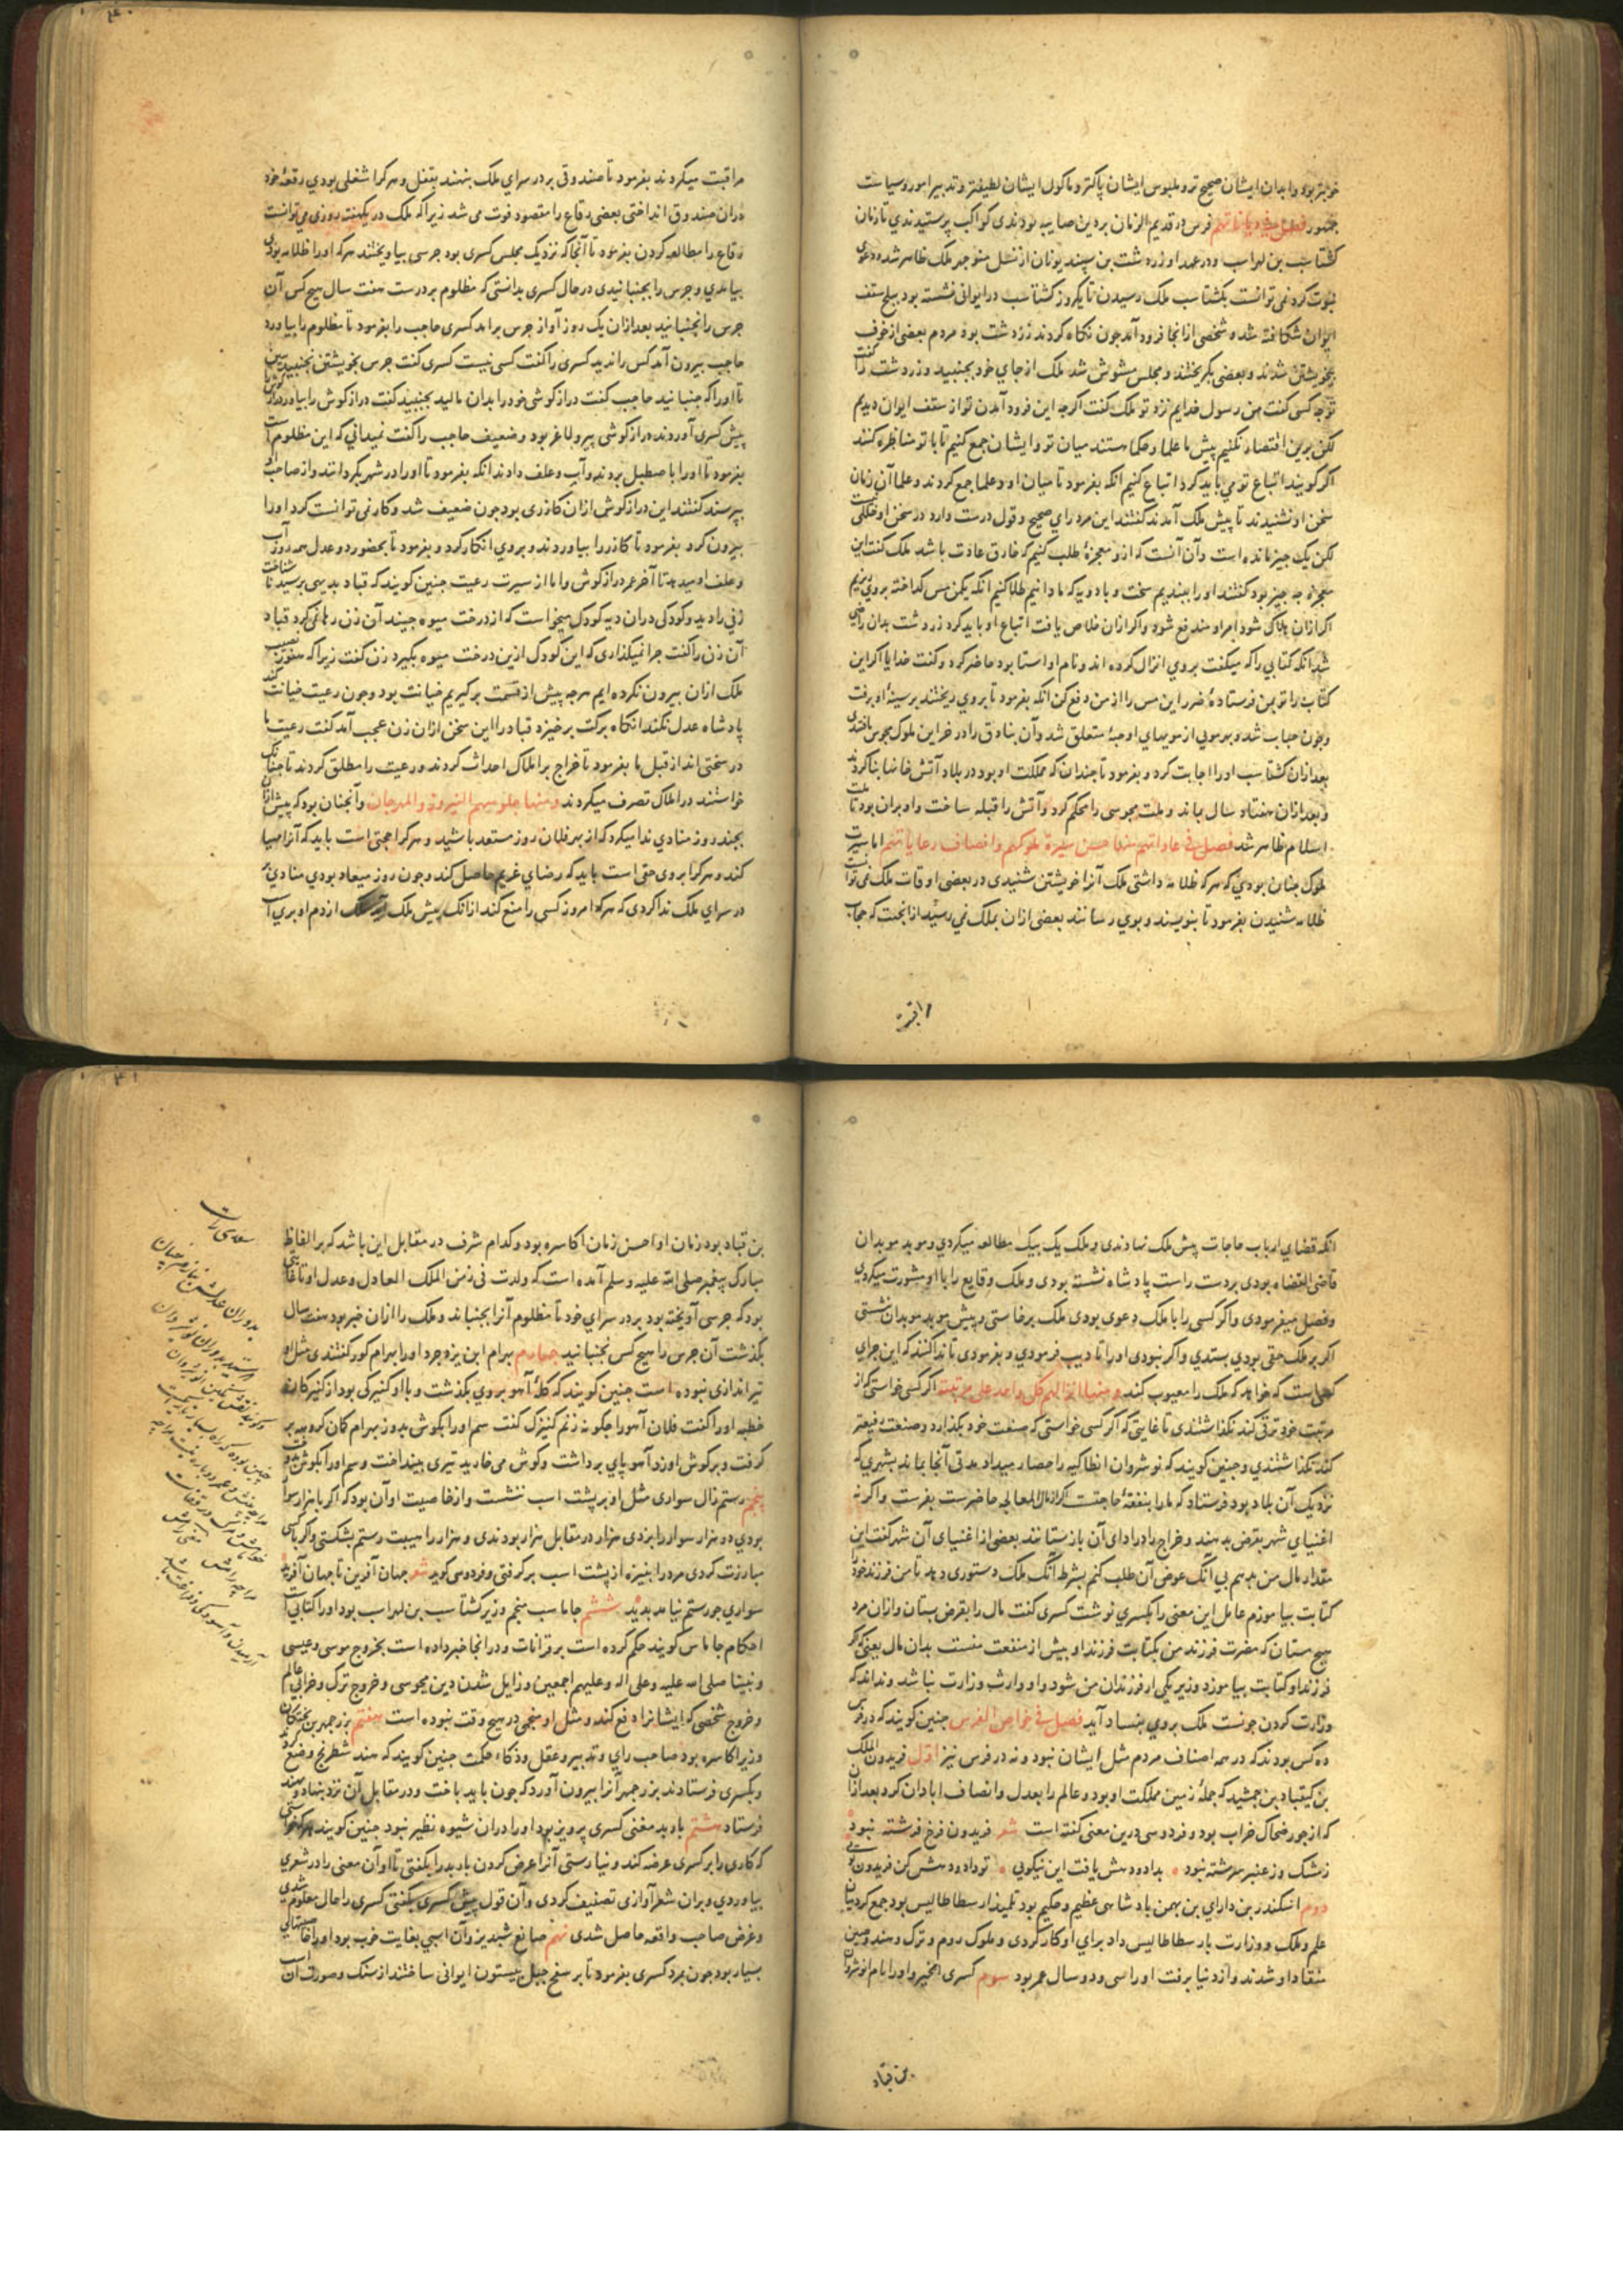 خوبتر بود و ابدان ایشان صحیح تر و ملبوس ایشان پاکتر و ماکول ایشان لطیفتر و تدبیر امور و سیاست
جمهور فصل فی دیاناتهم فرس در قدیم الزمان بر دین صابیه بودندی کواکب پرستیدندی تا زمان
کشتاسب بن لهراسب و در عهد او زردشت بن سپید یونان از نسل منوجهر ملک ظاهر شد و دعوی
نبوت کرد نمی توانست بکشتاسب ملک رسیدن تا یکروز کشتاسب در ایوانی نشسته بود سقف
ایوان شکافته شد و شخصی از آنجا فرود آمد چون نکاه کردند زردشت بود مردم بعضی از خوف
بیخویشتن شدند و بعضی بکریختند و مجلس مشوش شد ملک از جای خود نجنبید و زردشت را کفت
تو چه کسی کفت من رسول خدایم نزد تو ملک کفت اکرچه این فرود آمدن تو از سقف ایوان دیدیم
لکن برین اقتصار نکنیم پیش ما علما و حکما هستند میان تو و ایشان جمع کنیم تا با تو مناظره کنند
اکر کویند اتباع تو می باید کرد اتباع کنیم آنکه بفرمود تا میان او و علما جمع کردند و علما آن زمان
سخن او شنیدند تا پیش ملک آمدند کفتند این مرد رای صحیح و قول درست دارد در سخن او خللی نیست
لکن یک چیز مانده است و آن آنست که ازو معجزهٔ طلب کنیم که خارق عادت باشد ملک کفت این
معجزه چه چیز بود کفتند او را ببندیم سخت و با دویه که ما دانیم طلا کنیم آنکه یکمن مس کداخته بروی ریزیم
اکر ازان هلاک شود امر او مندفع شود و اکر ازان خلاص یافت اتباع او باید کرد زردشت بدان راضی
شد آنکه کتابی را که میکفت بروی انزال کرده اند و نام او استا بود حاضر کرد و کفت خدایا اکر این
کتاب را تو بمن فرستادهٔ ضرر این مس را از من دفع کن آنکه بفرمود تا بروی ریختند بر سینهٔ او برفت
و چون حباب شد و بهر مویی از مویهای او حبهٔ متعلق شد و آن بنادق را در خزاین ملوک مجوس یافتندی
بعد ازان کشتاسب او را اجابت کرد و بفرمود تا چندان که مملکت او بود در بلاد آتش خانها بنا کردند
و بعد ازان هفتاد سال بماند و ملت مجوسی را محکم کرد و آتش را قبله ساخت و او بران بود تا ملت
اسلام ظاهر شد فصل فی عاداتهم منها حسن سیرة ملوکهم و انصاف رعایاتهم اما سیرت
ملوک چنان بودی که هر که ظلامه داشتی ملک آنرا خویشتن شنیدی در بعضی اوقات ملک نمی توانست
ظلامه شنیدن بفرمود تا بنویسند و بوی رسانند بعضی ازان بملک نمی رسید از انجهت که حجاب
مراقبت
مراقبت میکردند بفرمود تا صندوقی بر در سرای ملک بنهند بقفل و هر کرا شغلی بودی رقعهٔ خود
دران صندوق انداختی بعضی رقاع را مقصود فوت می شد زیرا که ملک در یک هفته روزی می توانست
رقاع را مطالعه کردن بفرمود تا آنجا که نزدیک مجلس کسری بود جرسی بیاویختند هر که او را ظلامه بودی
بیامدی و جرس را بجنبانیدی در حال کسری بدانستی که مظلوم بر درست هفت سال هیچ کس آن
جرس را نجنبانید بعد ازان یک روز آواز جرس برآمد کسری حاجب را بفرمود تا مظلوم را بیاورد
حاجب بیرون آمد کس را ندید کسری را کفت کسی نیست کسری کفت جرس بخویشتن نجنبید ببین
تا او را که جنبانید حاجب کفت دراز کوشی خود را بدان مالید بجنبید کفت دراز کوش را بیاور دراز کوش را
پیش کسری آوردند دراز کوشی پیر و لاغر بود و ضعیف حاجب را کفت نمیدانی که این مظلوم است
بفرمود تا او را باصطبل بردند و آب و علف دادند آنکه بفرمود تا او را در شهر بکردانند و از صاحب او
بپرسند کفتند این دراز کوش ازان کازری بود چون ضعیف شد و کار نمی توانست کرد او را
بیرون کرد بفرمود تا کازر را بیاوردند و بروی انکار کرد و بفرمود تا بحضور دو عدل همه روز آب
و علف او میدهد تا آخر عمر دراز کوش و اما از سیرت رعیت چنین کویند که قباد بدیهی برسید تا
زنی را دید و کودکی دران دیه کودک میخواست که از درخت میوه چیند آن زن رها نمی کرد قباد
آن زن را کفت چرا نمیکذاری که این کودک ازین درخت میوه بکیرد زن کفت زیرا که هنوز نصیب
ملک ازان بیرون نکرده ایم هر چه پیش از قسمت بر کیریم خیانت بود و چون رعیت خیانت کند
پادشاه عدل نکند آنکاه برکت برخیزد قباد را این سخن ازان زن عجب آمد کفت رعیت ما
در سختی اند از قبل ما بفرمود تا خراج بر املاک احداث کردند و رعیت را مطلق کردند تا چنانک
خواستند در املاک تصرف میکردند و منها جلوسهم النیروز و المهرجان و آنچنان بود که پیش ازان
بچند روز منادی ندا میکرد که از بهر فلان روز مستعد باشید و هر کرا حجتی است باید که آنرا مهیا
کند و هر کرا بروی حقی است باید که رضای غریم حاصل کند و چون روز میعاد بودی منادی
در سرای ملک ندا کردی که هر که امروز کسی را منع کند از آنک پیش ملک ازدم او بری است
آنکه قضای ارباب حاجات پیش ملک نهادندی و ملک یک بیک مطالعه میکردی و موبد موبدان
قاضی القضاه بودی بر دست راست پادشاه نشسته بودی و ملک وقایع را با او مشورت میکردی
و فصل میفرمودی و اکر کسی را با ملک دعوی بودی ملک برخاستی و پیش موبد موبدان نشستی
اکر بر ملک حقی بودی بستدی و اکر نبودی او را تادیب فرمودی و بفرمودی تا ندا کنند که این جزای
کسی است که خواهد که ملک را معیوب کند و منها الزامهم کل واحد علی مرتبته اکر کسی خواستی که از
مرتبت خود ترقی کند نکذاشتندی تا غایتی که اکر کسی خواستی که صنعت خود بکذارد و صنعت رفیعتر
کند نکذاشتندی و چنین کویند که نوشروان انطاکیه را حصار میداد مدتی آنجا بماند بشهری که
نزدیک آن بلاد بود فرستاد که ما را بنفقهٔ حاجتست اکر از مال المعالی حاضرست بفرست و اکرنه
اغنیای شهر بقرض بدهند و خراج را در ادای آن بازستانند بعضی از اغنیای آن شهر کفت این
مقدار مال من بدهم بی آنک عوض آن طلب کنم بشرط آنک ملک دستوری دهد تا من فرزند خود را
کتابت بیاموزم عامل این معنی را بکسری نوشت کسری کفت مال را بقرض بستان و ازان مرد
هیچ مستان که مضرت فرزند من بکتابت فرزند او بیش از منفعت منست بدان مال یعنی که اکر
فرزند او کتابت بیاموزد وزیر یکی از فرزندان من شود و او وارث وزارت نباشد و نداند که
وزارت کردن چونست ملک بروی بفساد آید فصل فی خواص الفرس چنین کویند که در فرس
ده کس بودند که در همه اصناف مردم مثل ایشان نبود و نه در فرس نیز اول فریدون الملک
بن کیقباد بن جمشید که جملهٔ زمین مملکت او بود و عالم را بعدل و انصاف ابادان کرد بعد ازان
که از جور ضحاک خراب بود و فردوسی درین معنی کفته است شعر فریدون فرخ فرشته نبود
زمشک و ز عنبر سرشته نبود بداد و دهش یافت این نیکویی تو داد و دهش کن فریدون تویی
دوم اسکندر بن دارای بن بهمن پادشاهی عظیم و حکیم بود تلمیذ ارسطاطالیس بود جمع کرد میان
علم و ملک و وزارت بارسطاطالیس داد برای او کار کردی و ملوک روم و ترک و هند و چین
منقاد او شدند و از دنیا برفت او را سی و دو سال عمر بود سوم کسری الخیر و او را نام انوشروان
بن قباد
بن قباد بود زمان او احسن زمان اکاسره بود و کدام شرف در مقابل این باشد که بر الفاظ
مبارک پیغمبر صلی الله علیه و سلم آمده است که ولدت فی زمن الملک العادل و عدل او تا غایتی
بود که جرسی آویخته بود بر در سرای خود تا مظلوم آنرا بجنباند و ملک را ازان خبر بود هفت سال
بکذشت آن جرس را هیچ کس نجنبانید چهارم بهرام ابن یزدجرد او را بهرام کور کفتندی مثل او
تیراندازی نبوده است چنین کویند که کلهٔ آهو بروی بکذشت و با او کنیزکی بود از کنیزکان
خطیه او را کفت فلان آهو را چکونه زنم کنیزک کفت سم او را بکوش بدوز بهرام کمان کروهه بر
کرفت و بر کوش او زد آهو پای برداشت و کوش می خارید تیری بینداخت و سم او را بکوش دوخت
پنجم رستم زال سواری مثل او بر پشت اسب ننشست و از خاصیت او آن بود که اکر با هزار سوار
بودی دو هزار سوار را بزدی هزار در مقابل هزار بودندی و هزار را هیبت رستم بشکستی و اکر باکسی
مبارزت کردی مرد را بنیزه از پشت اسب بر کرفتی و فردوسی کوید شعر جهان آفرین تا جهان آفرید
سواری چو رستم نیامد پدید ششم جاماسب منجم وزیر کشتاسب بن لهراسب بود او را کتابی است
احکام جاماس کویند حکم کرده است بر قرانات و درانجا خبر داده است بخروج موسی و عیسی
و نبینا صلی الله علیه و علی اله و علیهم اجمعین و زایل شدن دین مجوسی و خروج ترک و خرابی عالم
و خروج شخصی که ایشانرا دفع کند و مثل او منجمی در هیچ وقت نبوده است هفتم بزرجمهر بن بختکان
وزیر اکاسره بود صاحب رای و تدبیر و عقل و ذکاء و حکمت چنین کویند که هند شطرنج وضع کردند
و بکسری فرستادند بزرجمهر آنرا بیرون آورد که چون باید باخت و در مقابل آن نرد بنهاد و بهند
فرستاد هشتم باربد مغنی کسری پرویز بود او را دران شیوه نظیر نبود چنین کویند هر که خواستی
که کاری را بر کسری عرضه کند و نیارستی آنرا عرض کردن باربد را بکفتی تا او آن معنی را در شعری
بیاوردی و بران شعر آوازی تصنیف کردی و آن قول پیش کسری بکفتی کسری را حال معلوم شدی
و غرض صاحب واقعه حاصل شدی نهم صانع شبدیز و آن اسبی بغایت خوب بود او را خاصیتهای
بسیار بود چون بمرد کسری بفرمود تا بر سفح جبل بیستون ایوانی ساختند از سنک و صورت آن اسب